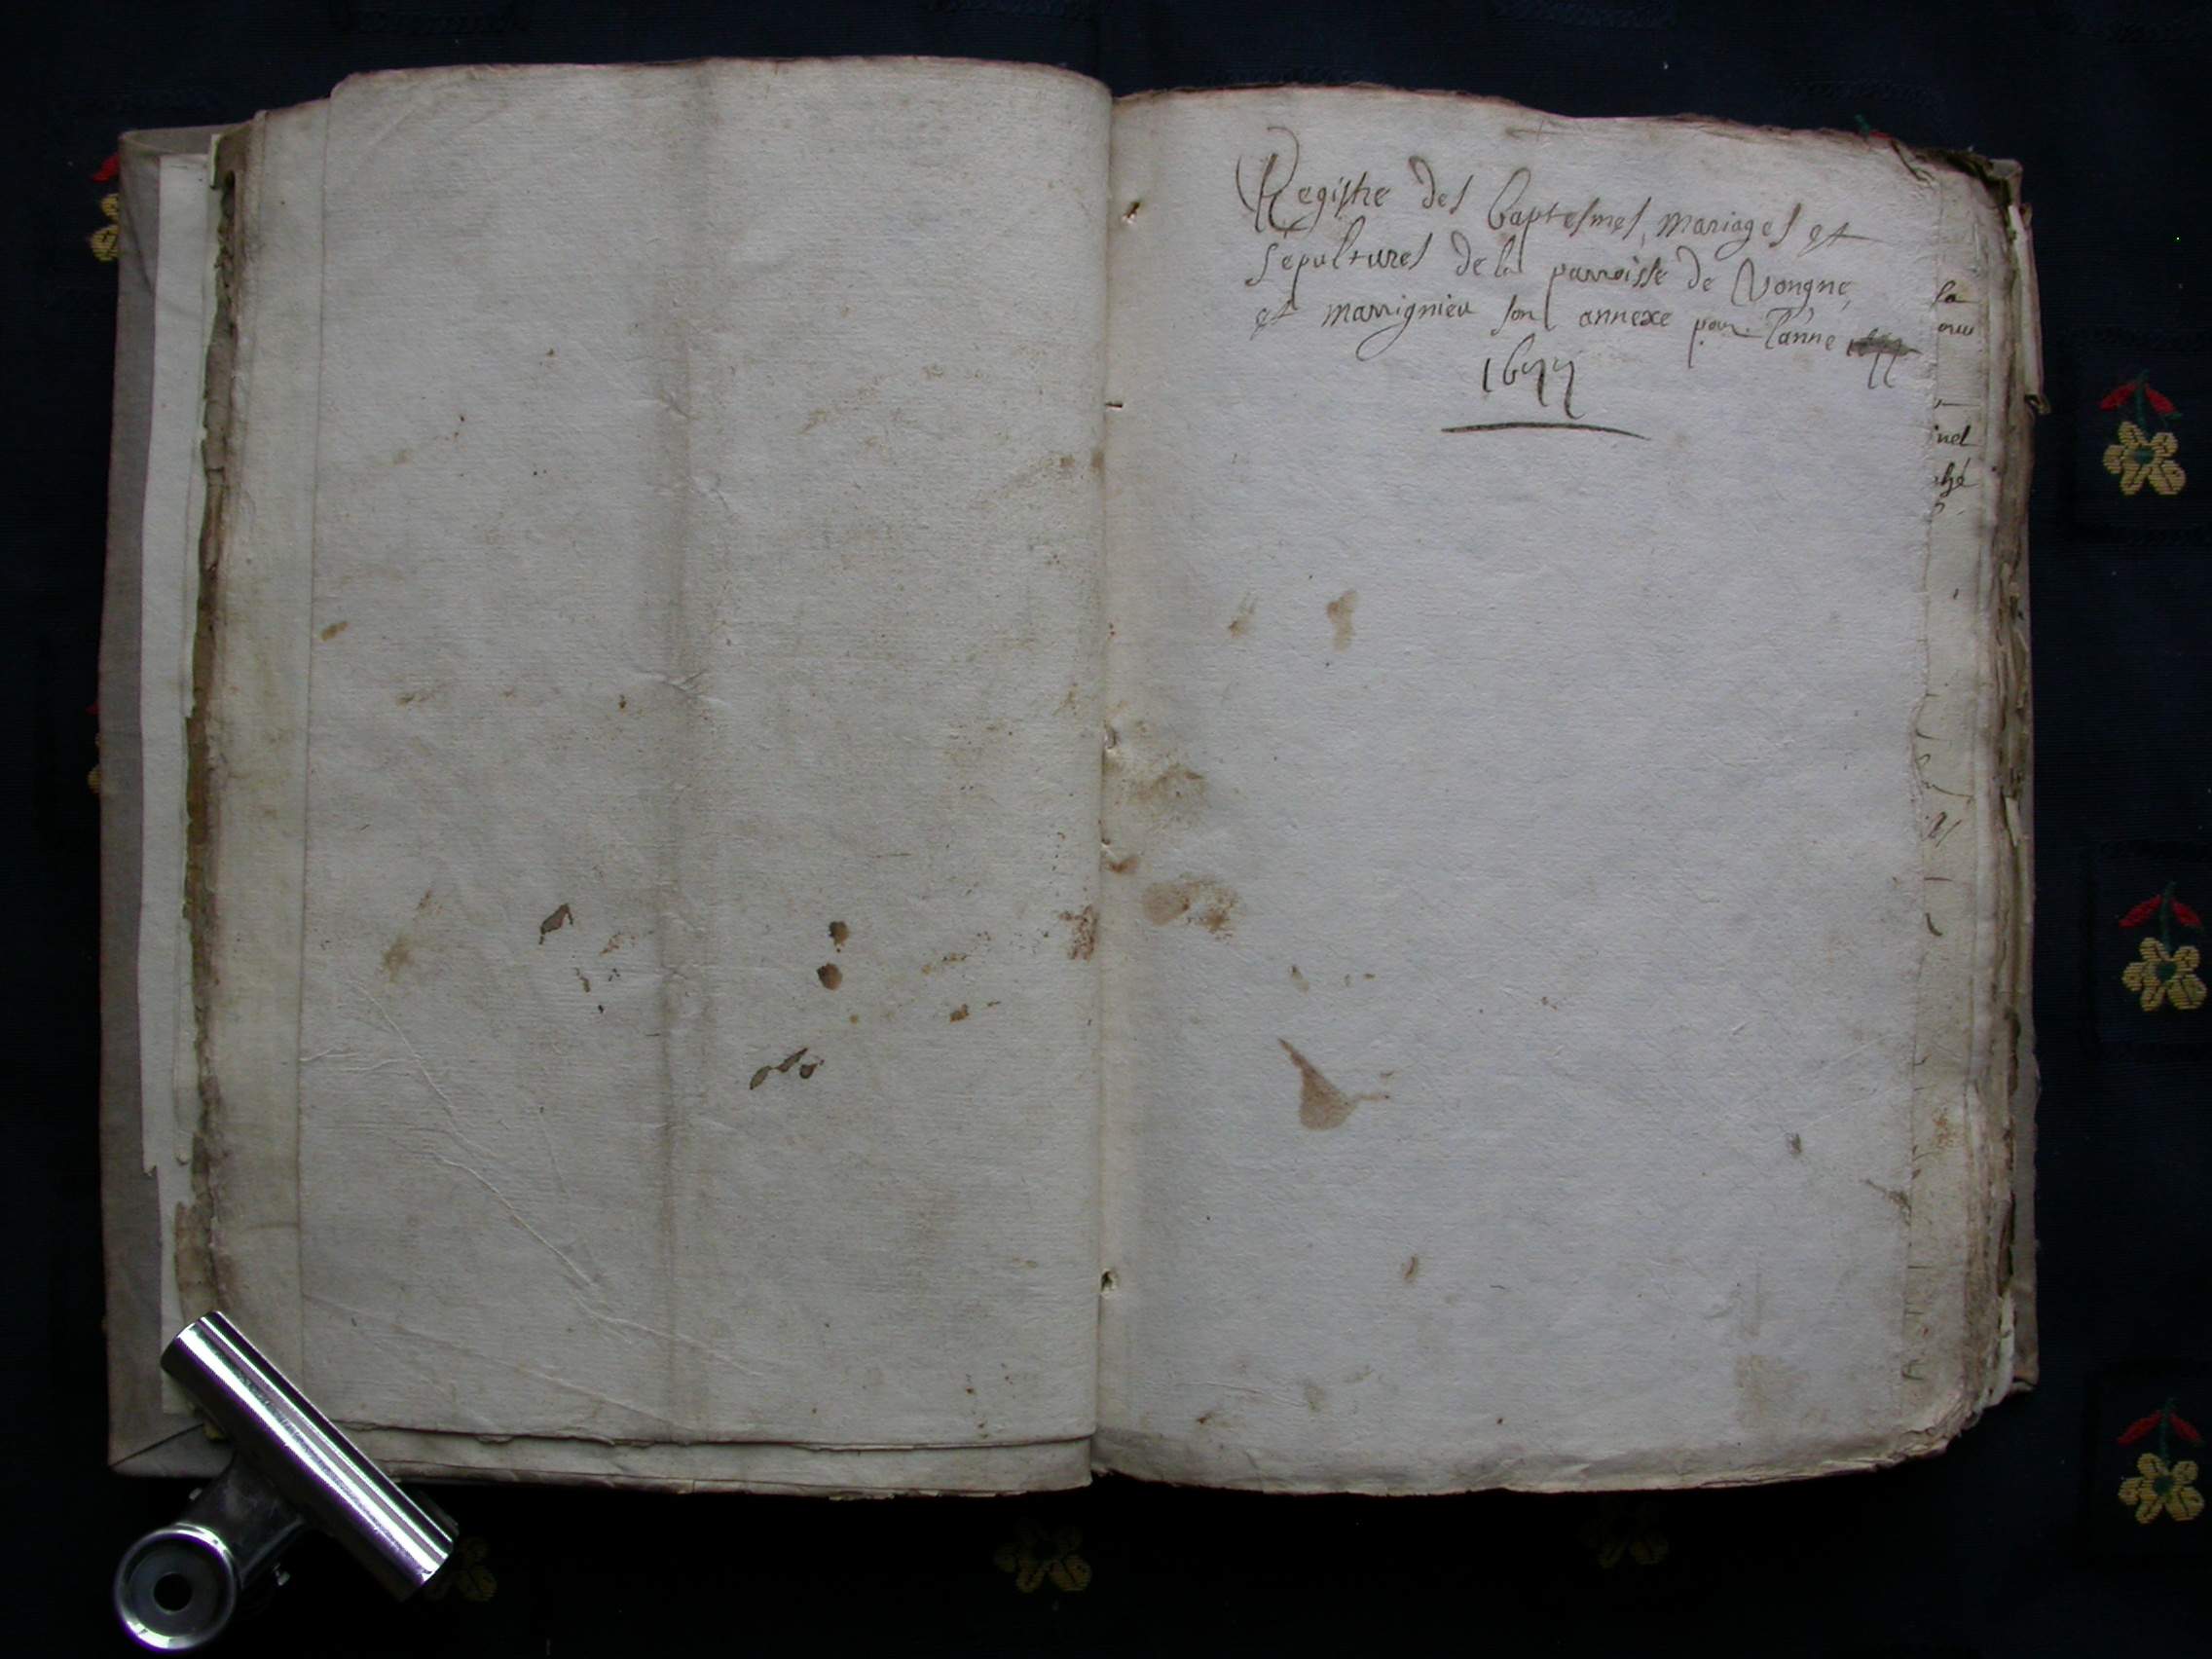 Registre des baptesmes, mariages et
sepultures de la parroisse de Vongne,
et marrignieu son annexe pour l'anne 1677
1677
la
nel